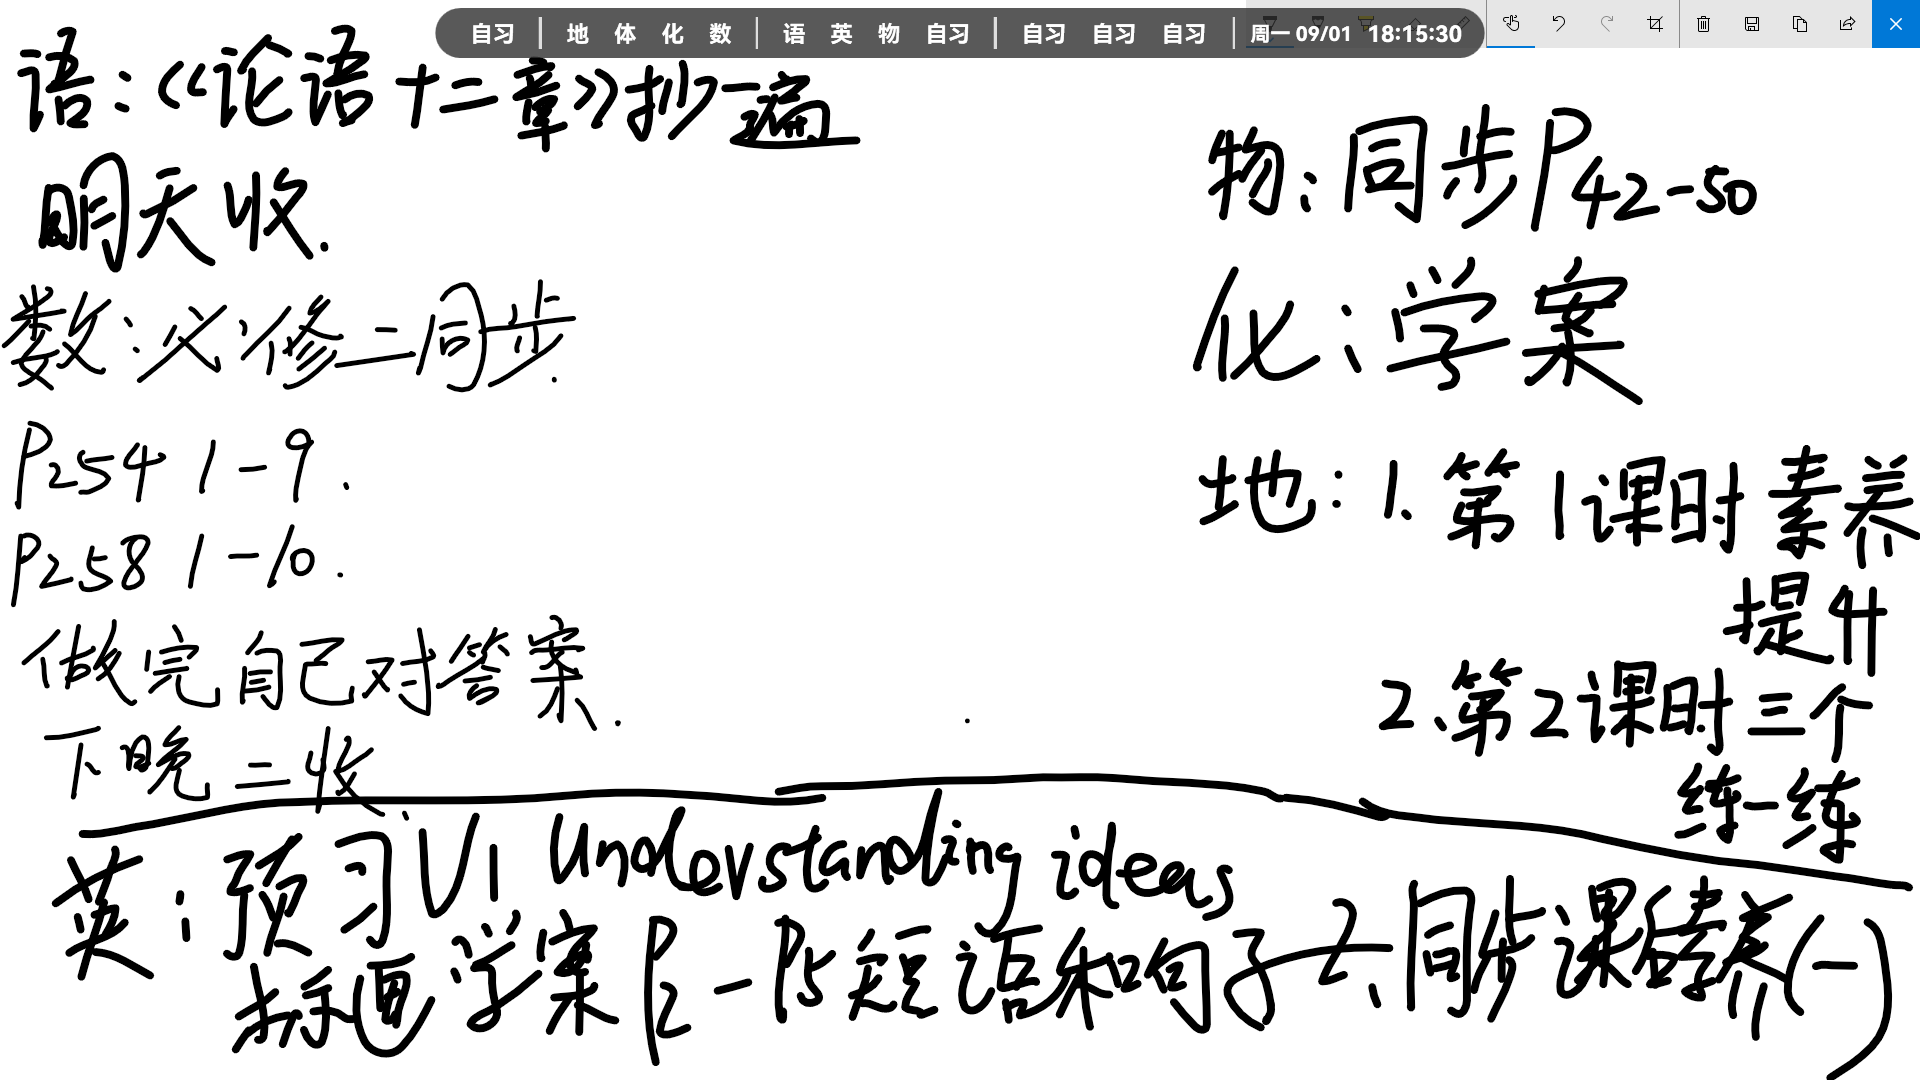 自习 | 地 体 化 数 | 语 英 物 自习 | 自习 自习 自习 | 周一 09/01 18:15:30
语：《论语十二章》抄一遍
明天收.
数：必修二同步.
P254 1-9.
P258 1-10.
做完自己对答案.
下晚二收.
物：同步P42-50
化：学案
地：1、第1课时素养
提升
2、第2课时三个
练一练
英：预习U1 Understanding ideas
标画学案P2-P5短语和句子 2、同步课后素养(一)